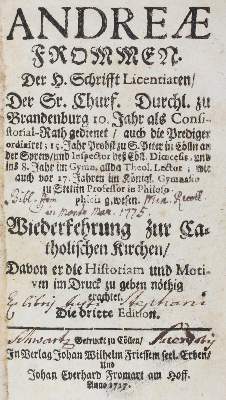 ANDREÆ
FROMMEN.
Der H. Schrifft Licentiaten/
Der Sr. Churf. Durchl. zu
Brandenburg 10. Jahr als Consi-
storial-Rath gedienet / auch die Prediger
ordiniret; 15. Jahr Probst zu S. Peter in Cölln an
der Spree/ und Inspector des Diœcesis, und
ins 8. Jahr im Gymn. allda Theol. Lector; wie
auch vor 17. Jahren im Königl. Gymnasio
zu Stettin Professor in Philoso-
phicis gewesen.
1775.
Wiederkehrung zur Ca-
tholischen Kirchen/
Davon er die Historiam und Moti-
vm im Druck zu geben nöthig
erachtet.
Ex libris
Die dritte Edition.
Schwartz
Getruckt zu Cöllen/
In Verlag Johan Wilhelm Friessem seel. Erben/
Und
Johan Everhard Fromart am Hoff.
Anno 1717.